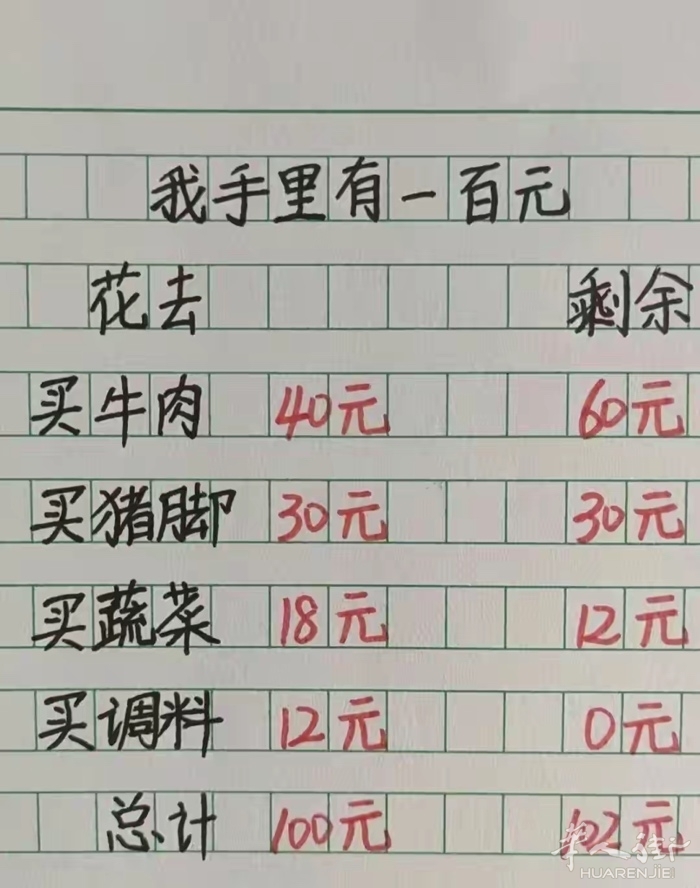 我手里有一百元
花去 剩余
买牛肉 40元 60元
买猪脚 30元 30元
买蔬菜 18元 12元
买调料 12元 0元
总计 100元 102元
华人街
HUARENJIE